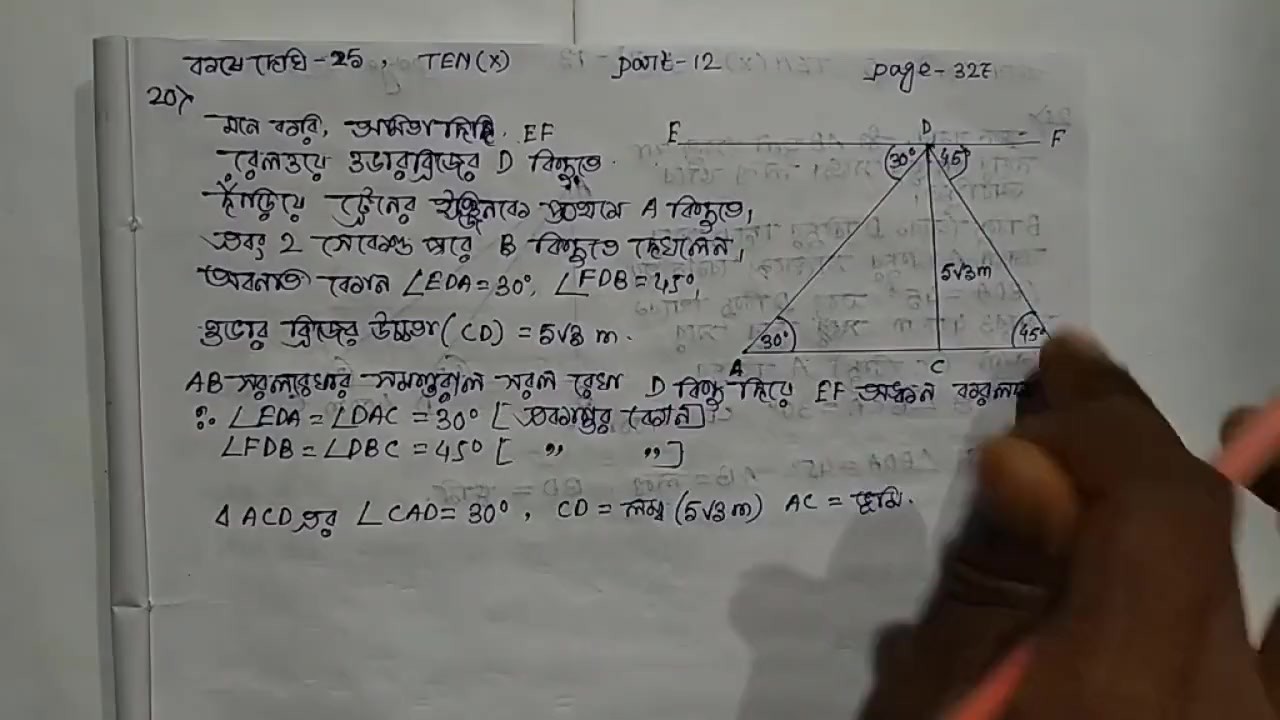 কষে দেখি - 25, TEN(X) part-12 page-327
20>
মনে করি, অমিতাদিদি EF
রেলওয়ে ওভারব্রিজের D বিন্দুতে
দাঁড়িয়ে ট্রেনের ইঞ্জিনকে প্রথমে A বিন্দুতে,
এবং 2 সেকেন্ড পরে B বিন্দুতে দেখলেন,
অবনতি কোন ∠EDA = 30°, ∠FDB = 45°,
ওভার ব্রিজের উচ্চতা (CD) = 5√3 m.
AB সরলরেখার সমান্তরাল সরল রেখা D বিন্দু দিয়ে EF অঙ্কন
∴ ∠EDA = ∠DAC = 30° [একান্তর কোন]
∠FDB = ∠DBC = 45° [ ,, ,, ]
Δ ACD এর ∠CAD = 30°, CD = লম্ব (5√3 m) AC = ভূমি.
E D F
30° 45°
5√3 m
30° 45°
A C